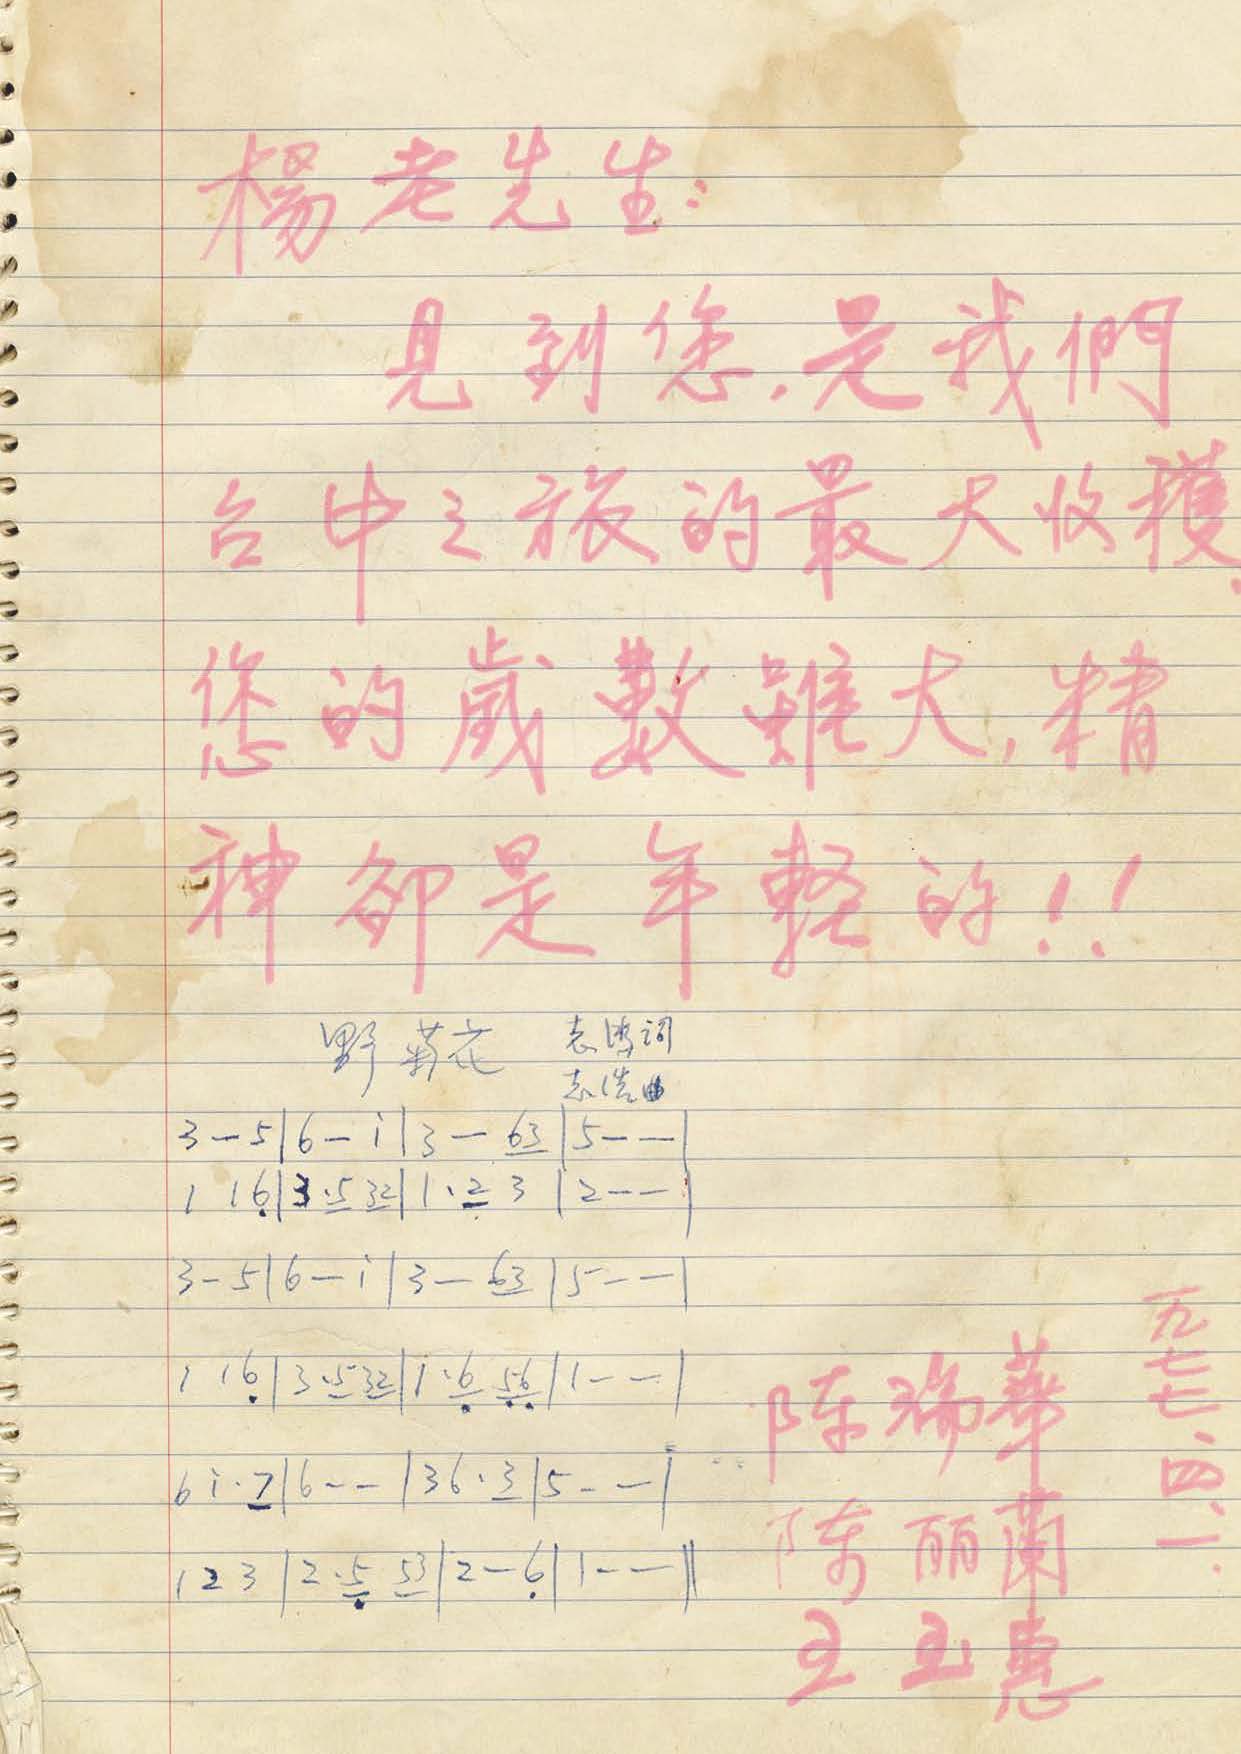 楊老先生:
見到您,是我們
台中之旅的最大收穫.
您的歲數雖大,精
神卻是年輕的!!
野菊花
詞
曲
3 - 5 | 6 - i | 3 - 63 | 5 - - |
1 1 6 | 3 · 5 32 | 1 · 2 3 | 2 - - |
3 - 5 | 6 - i | 3 - 63 | 5 - - |
1 1 6 | 3 · 5 32 | 1 · 6 56 | 1 - - |
6 i · 7 | 6 - - | 3 6 · 3 | 5 - - |
1 2 3 | 2 · 5 53 | 2 - 6 | 1 - - ||
陈瑞華
陈丽蘭
王玉惠
一九七七、四、一.